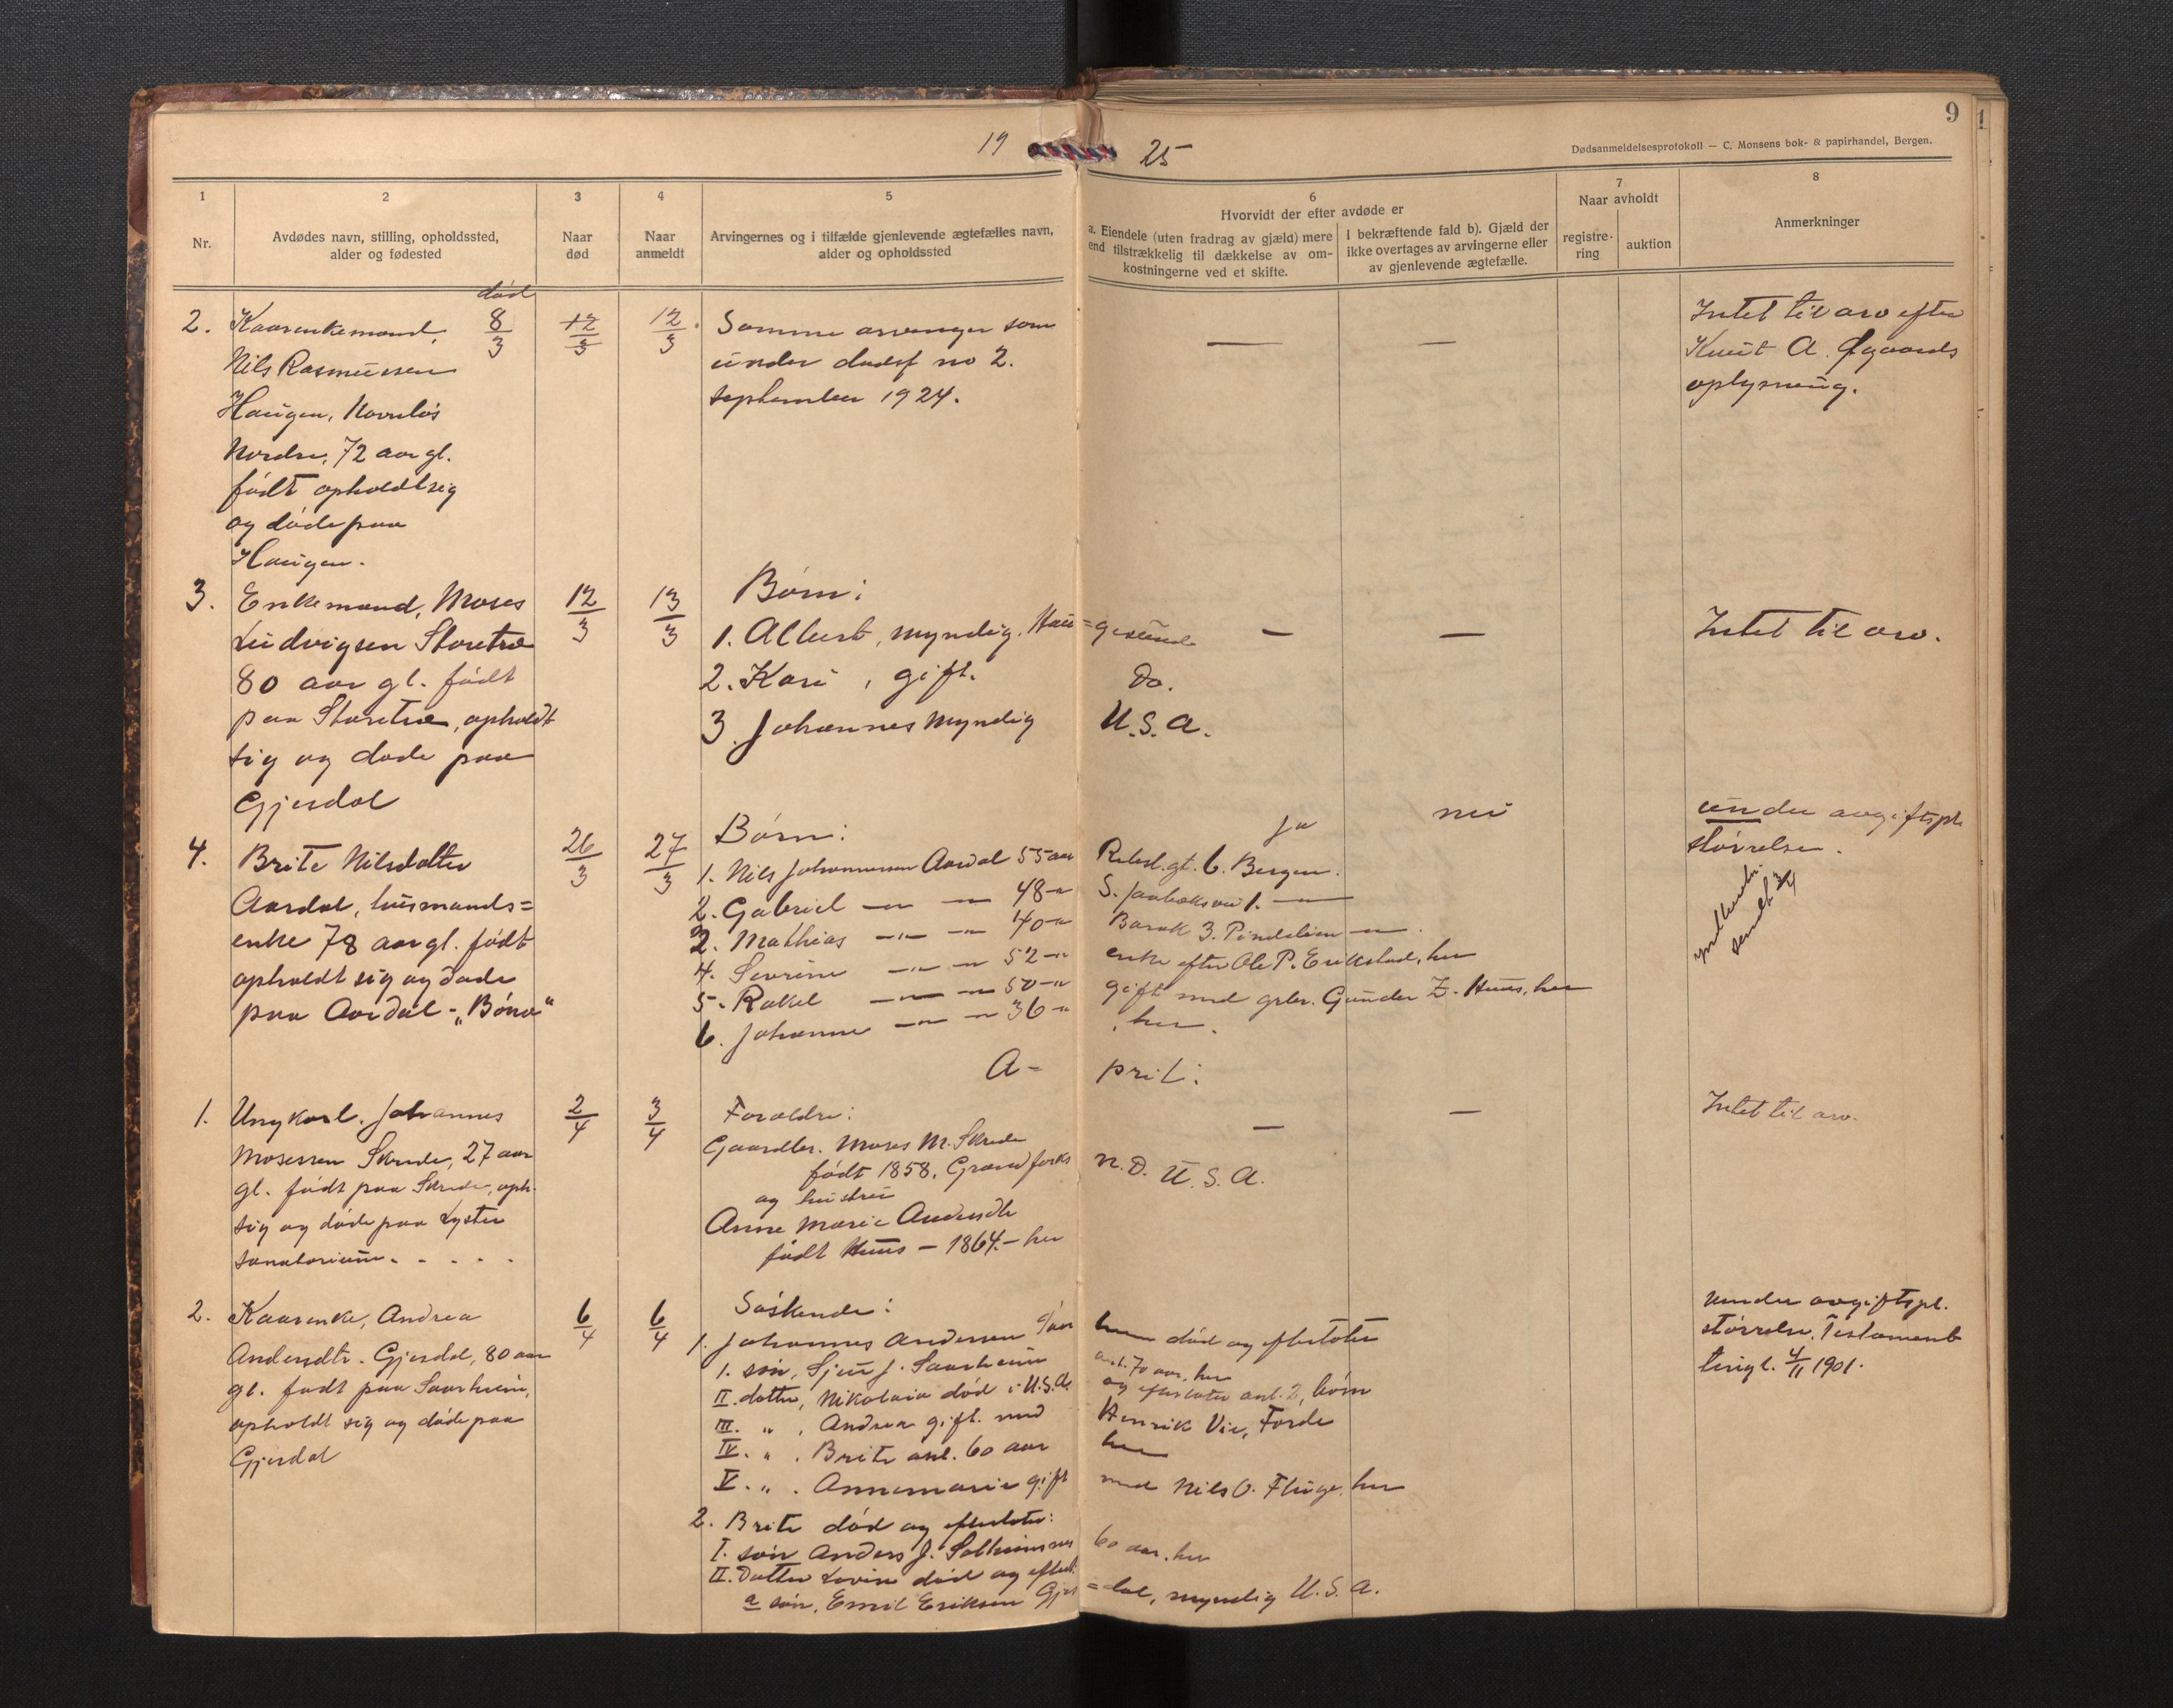 9
1
19 25
Dødsanmeldelsesprotokoll — C. Monsens bok- & papirhandel, Bergen.
1
Nr.
2
Avdødes navn, stilling, opholdssted,
alder og fødested
3
Naar
død
4
Naar
anmeldt
5
Arvingernes og i tilfælde gjenlevende ægtefælles navn,
alder og opholdssted
6
Hvorvidt der efter avdøde er
a. Eiendele (uten fradrag av gjæld) mere
end tilstrækkelig til dækkelse av om-
kostningerne ved et skifte.
I bekræftende fald b). Gjæld der
ikke overtages av arvingerne eller
av gjenlevende ægtefælle.
7
Naar avholdt
registre-
ring
auktion
8
Anmerkninger
2. Kaarenkemand, død 8/3
Nils Rasmussen
Haugen, Navnløs
Nordre, 72 aar gl.
født opholdt sig
og døde paa
Haugen.
12/3
12/3
Samme arvinger som
under dødsf no 2.
september 1924.
— —
Intet til arv efter
Knut A. Øgaards
oplysning.
3. Enkemand, Moses
Ludvigsen Storetræ
80 aar gl. født
paa Storetræ, opholdt
sig og døde paa
Gjesdal
12/3
13/3
Børn:
1. Albert, myndig. Hau=gesund — —
2. Kari, gift. Do.
3. Johannes myndig U.S.A.
Intet til arv.
4. Brite Nilsdatter
Aardal, husmands=
enke 78 aar gl. født
opholdt sig og døde
paa Aardal - „Børa"
26/3
27/3
Børn: ja nei
1. Nils Johannessen Aardal 55 aar Rebsl.gt. 6. Bergen.
2. Gabriel —"— — 48 -"
2. Mathias —"— — 40 -" Barak 3.
4. Sevrine —"— — 52 -" enke efter Ole P. Erikstad, her
5. Rakel —"— — 50 -" gift med grbr. Gunder Z. Huus, her
6. Johanne —"— — 36 -" , her.
under avgiftspl.
størrelse.
A- pril:
1. Ungkarl. Johannes
Mosessen Skrede, 27 aar
gl. født paa Skrede, oph.
sig og døde paa Lyster
sanatorium. - - - -
2/4
3/4
Forældre:
Gaardbr. Moses M. Skrede
født 1858, Grand forks N.D. U.S.A.
og hustru
Anne Marie Andersdtr
født Huus - 1864 - her
— —
Intet til arv.
2. Kaarenke, Andrea
Andersdtr. Gjesdal, 80 aar
gl. født paa Saarheim,
opholdt sig og døde paa
Gjesdal
6/4
6/4
Søskende:
1. Johannes Andersen død og efterlater
1. søn, Sjur J. Saarheim anl. 70 aar, her
II. datter, Nikolaia død i U.S.A. og efterlater anl. 2 børn
III. " , Andrea gift med Henrik Vie, Førde
IV. " . Brite anl. 60 aar her
V. " . Annemarie gift med Nils O. Fluge, her
2. Brite død og efterlater:
I. søn Anders J. Solheimsnes 60 aar, her
II. Datter Lovise død og efterl.
a søn, Emil Eriksen Gjes=dal, myndig U.S.A.
under avgiftspl.
størrelse. Testament
tingl. 4/11 1901.